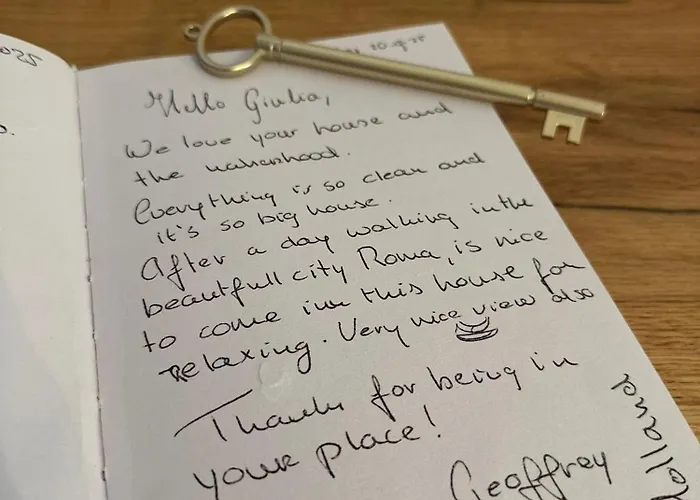 Hello Giulia,
We love your house and
the naherhood.
Everything is so clean and
it's so big house.
After a day walking in the
beautfull city Roma, is nice
to come inn this house for
relaxing. Very nice view also
Thank for being in
your place!
Geoffrey
Holland